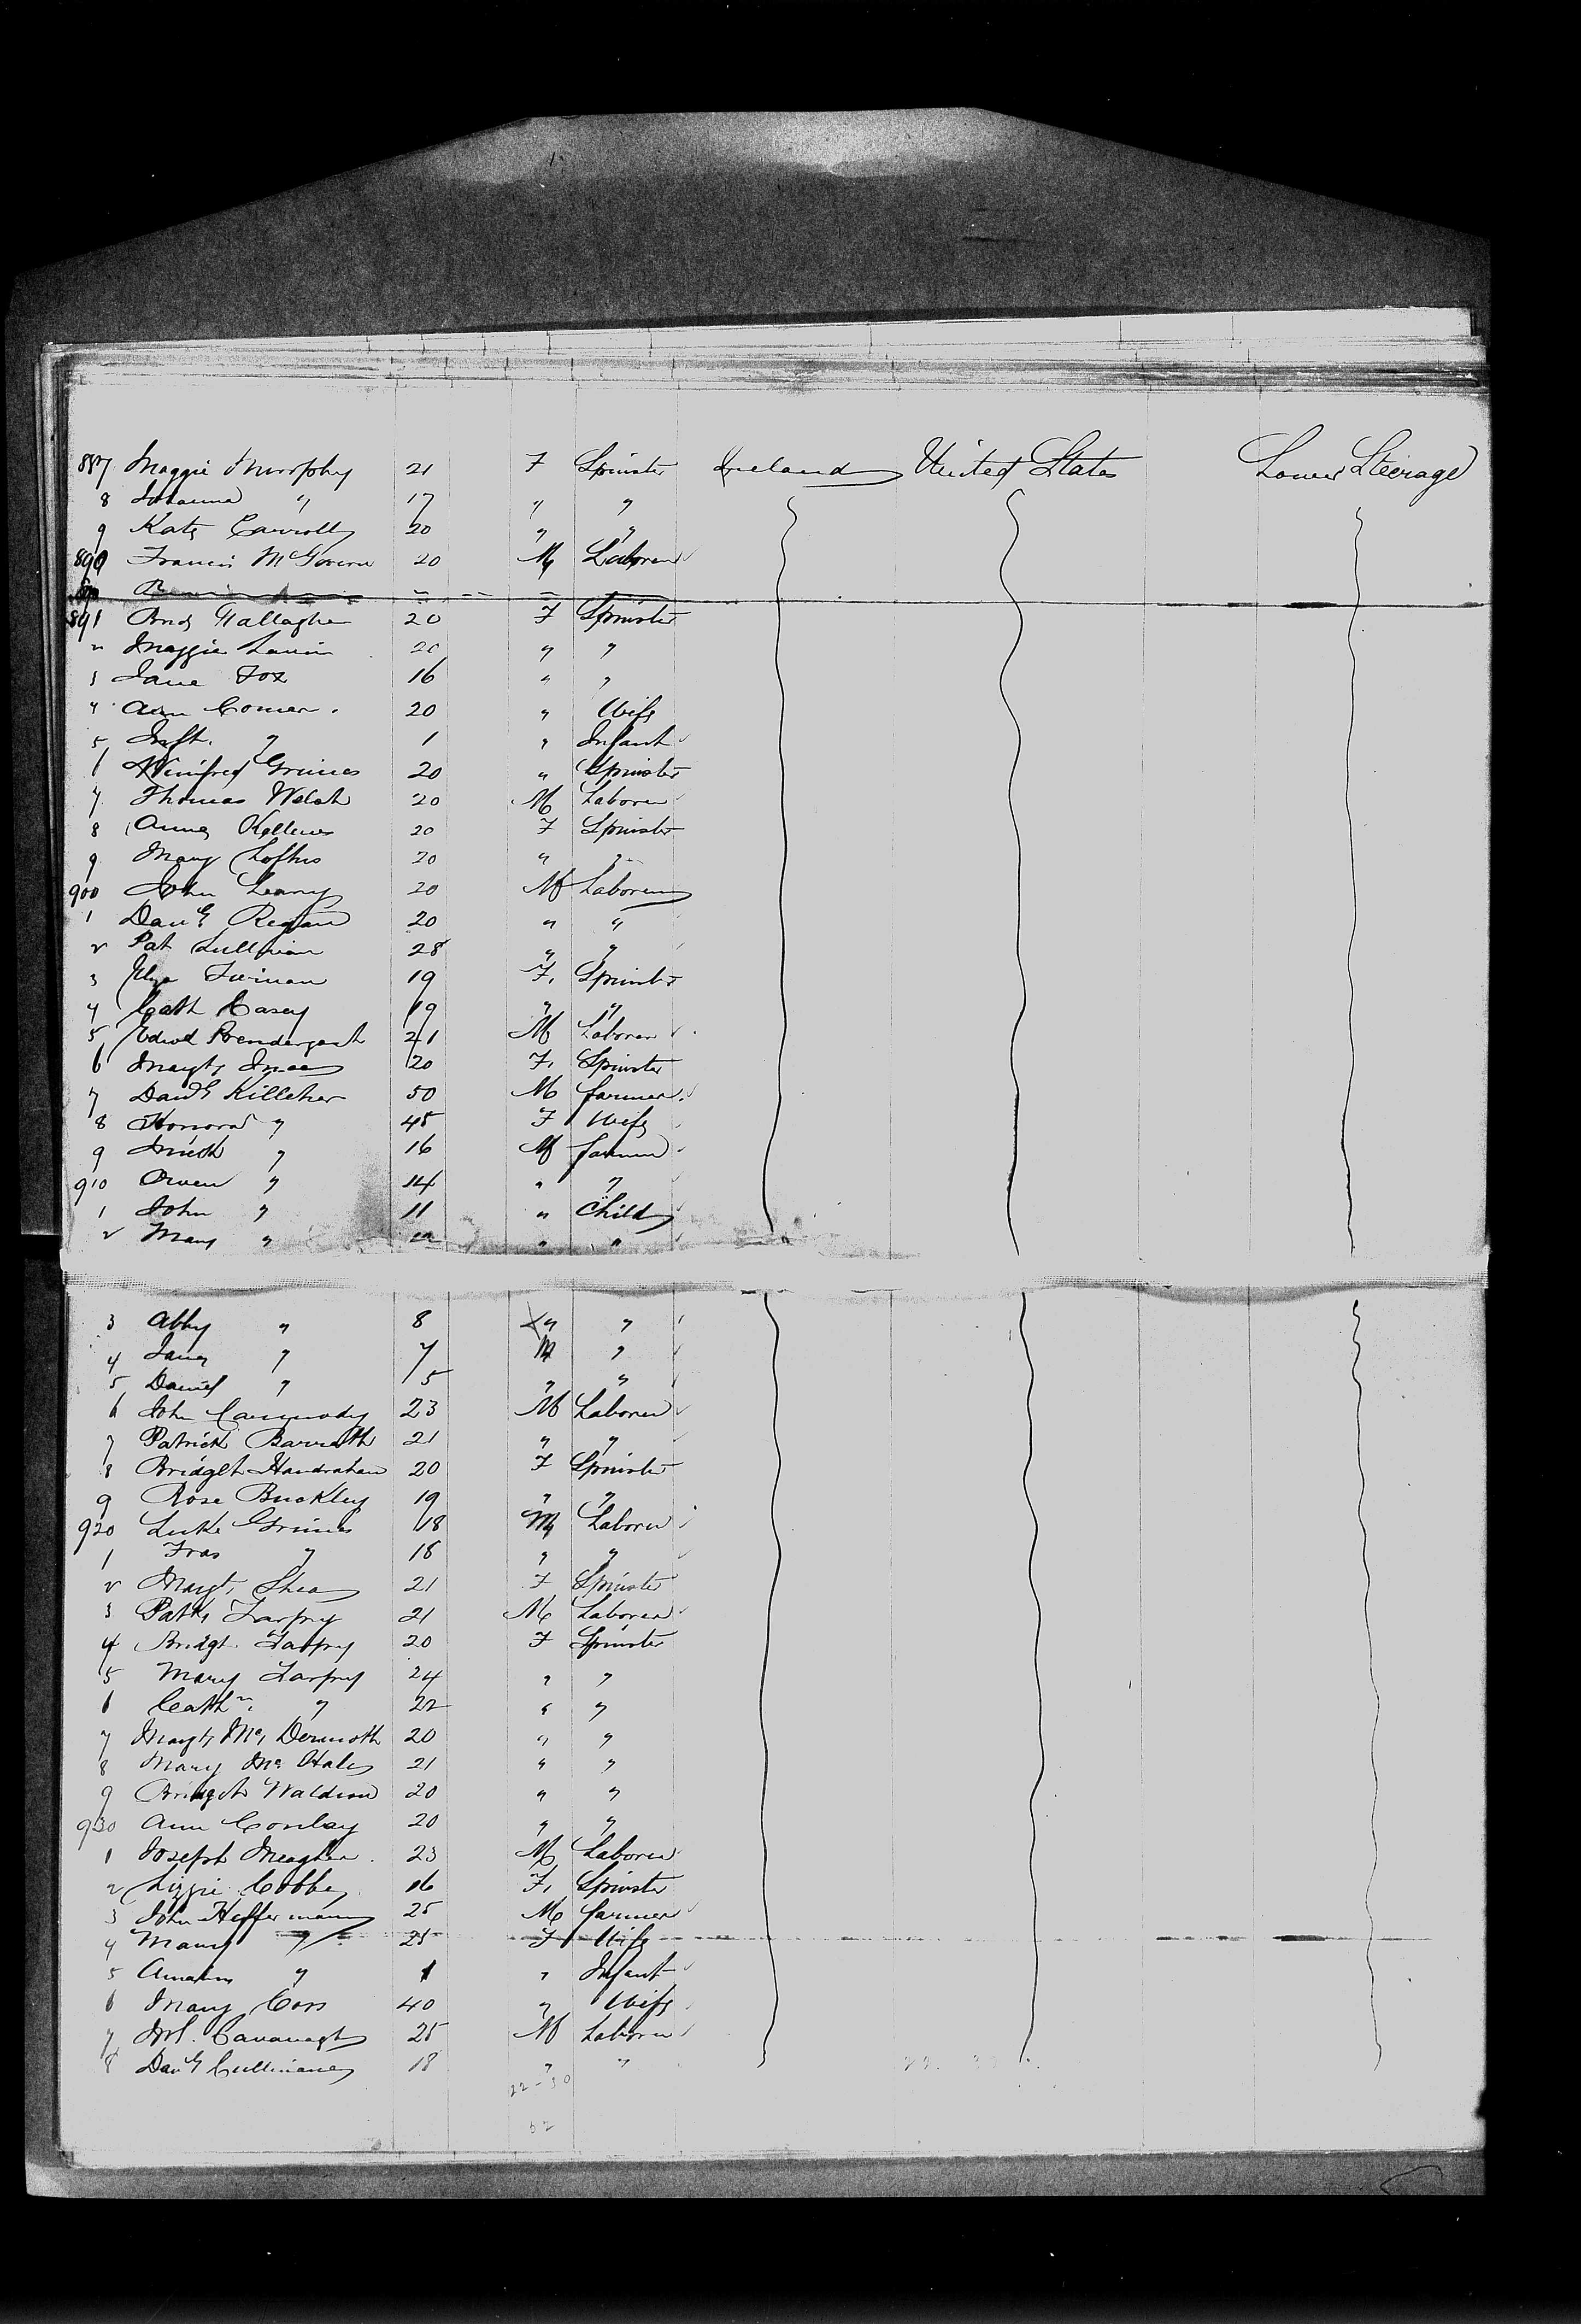 887 Maggie Murphy 21 F Spinster Ireland United States Lower Steerage
8 Johanna " 17 " "
9 Kate Carroll 20 " "
890 Francis McGovern 20 M Laborer
891 Brid Gallagher 20 F Spinster
2 Maggie 20 " "
3 Jane Fox 16 " "
4 Ann Comer. 20 " Wife
5 Inft. " 1 " Infant
6 Winifred Grimes 20 " Spinster
7 Thomas Welsh 20 M Laborer
8 Anne 20 F Spinster
9 Mary Loftus 20 " "
900 John Leary 20 M Laborer
1 Danl Regan 20 " "
2 Pat Sullivan 28 " "
3 19 F. Spinster
4 Cath Casey 19 " "
5 Edwd Prendergast 21 M Laborer
6 Margt. 20 F. Spinster
7 Danl Killeher 50 M farmer
8 Honora " 45 F Wife
9 Mich " 16 M farmer
910 Owen " 14 " "
1 John " 11 " Child
2 Mary " " "
3 Abby " 8 " "
4 " 7 M "
5 Daniel " 5 " "
6 John Carmody 23 M Laborer
7 Patrick Barrett 21 " "
8 Bridget Handrahan 20 F Spinster
9 Rose Buckley 19 " "
920 Luke Grimes 18 M Laborer
1 Fras " 18 " "
2 Margt. Shea 21 F Spinster
3 Patk. Tarpey 21 M Laborer
4 Bridgt. Tarpey 20 F Spinster
5 Mary Tarpey 24 " "
6 Cathn. " 22 " "
7 Margt. Mc Dermott 20 " "
8 Mary Mc Hale 21 " "
9 Bridget Waldron 20 " "
930 Ann Conboy 20 " "
1 Joseph Meagher 23 M Laborer
2 Lizzie Cobbe 16 F. Spinster
3 John Heffernan 25 M farmer
4 Mary " 25 F Wife
5 " 1 " Infant
6 Mary 40 " Wife
7 Ml. Cavanagh 25 M Laborer
8 Danl Cullinane 18 " "
22-30
52